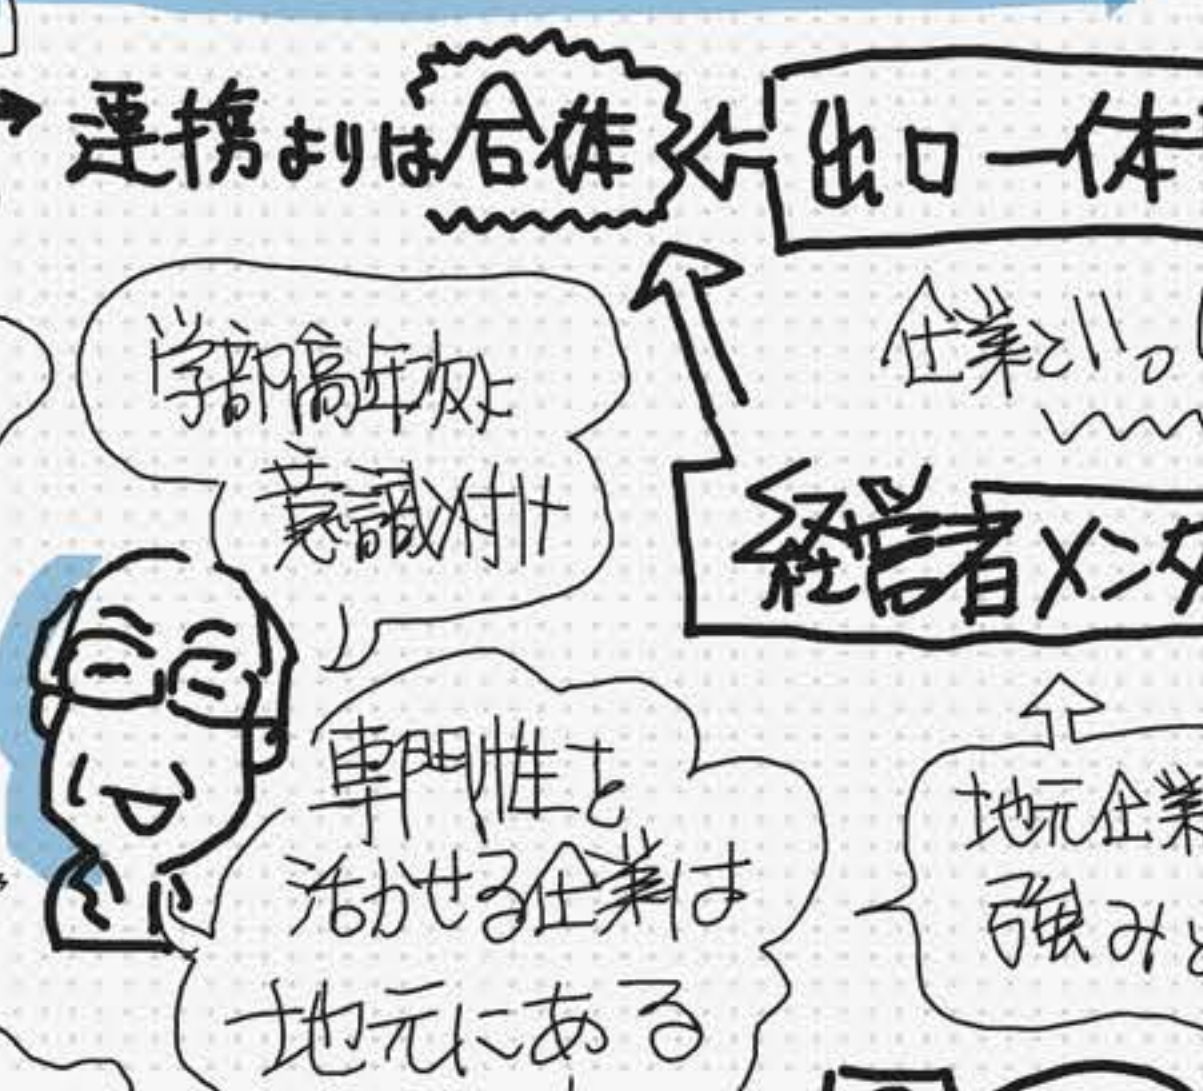 連携よりは合体
出口一体
学部高年次に
意識付け
企業といっ
経営者メンタ
専門性を
活かせる企業は
地元にある
地元企業
強みと